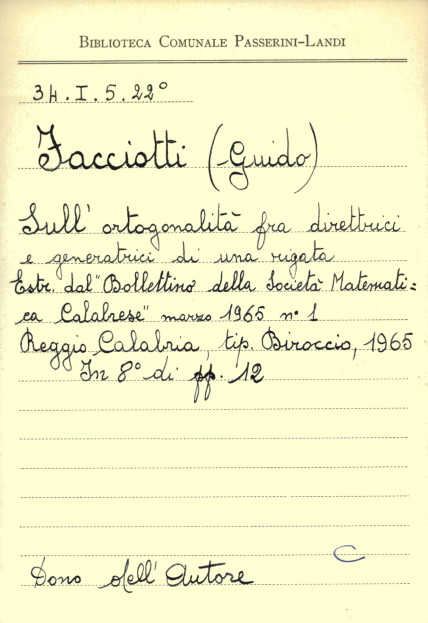 BIBLIOTECA COMUNALE PASSERINI-LANDI
34.I.5.22°
Facciotti (Guido)
Sull' ortogonalità fra direttrici
e generatrici di una rigata
Estr. dal "Bollettino della Società Matemati=
ca Calabrese" marzo 1965 n° 1
Reggio Calabria, tip. Biroccio, 1965
In 8° di pp. 12
C
Dono dell' Autore